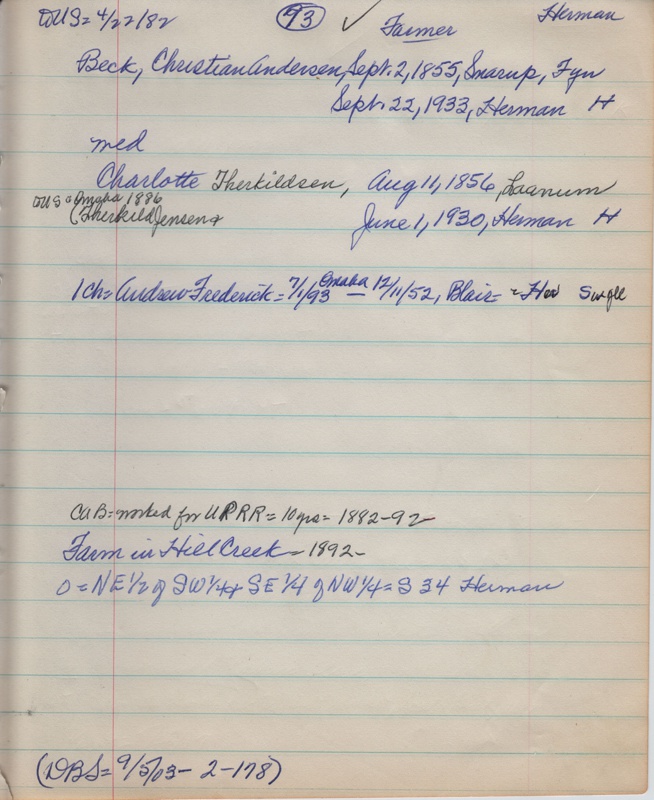 DUS = 4/22/82 93 ✓ Farmer Herman
Beck, Christian Andersen, Sept. 2, 1855, Snarup, Fyn
Sept. 22, 1933, Herman H
med
Charlotte Therkildsen, Aug 11, 1856,
DUS = Omaha 1886
(Therkild Jensen June 1, 1930, Herman H
1 ch = Andrew Frederick = 7/1/93 Omaha — 12/11/52, Blair = Single
CAB = worked for UPRR = 10 yrs = 1882-92
Farm in Hill Creek - 1892 -
O = NE 1/2 of SW 1/4 + SE 1/4 of NW 1/4 = S 34 Herman
(DBS = 9/5/03 - 2-178)